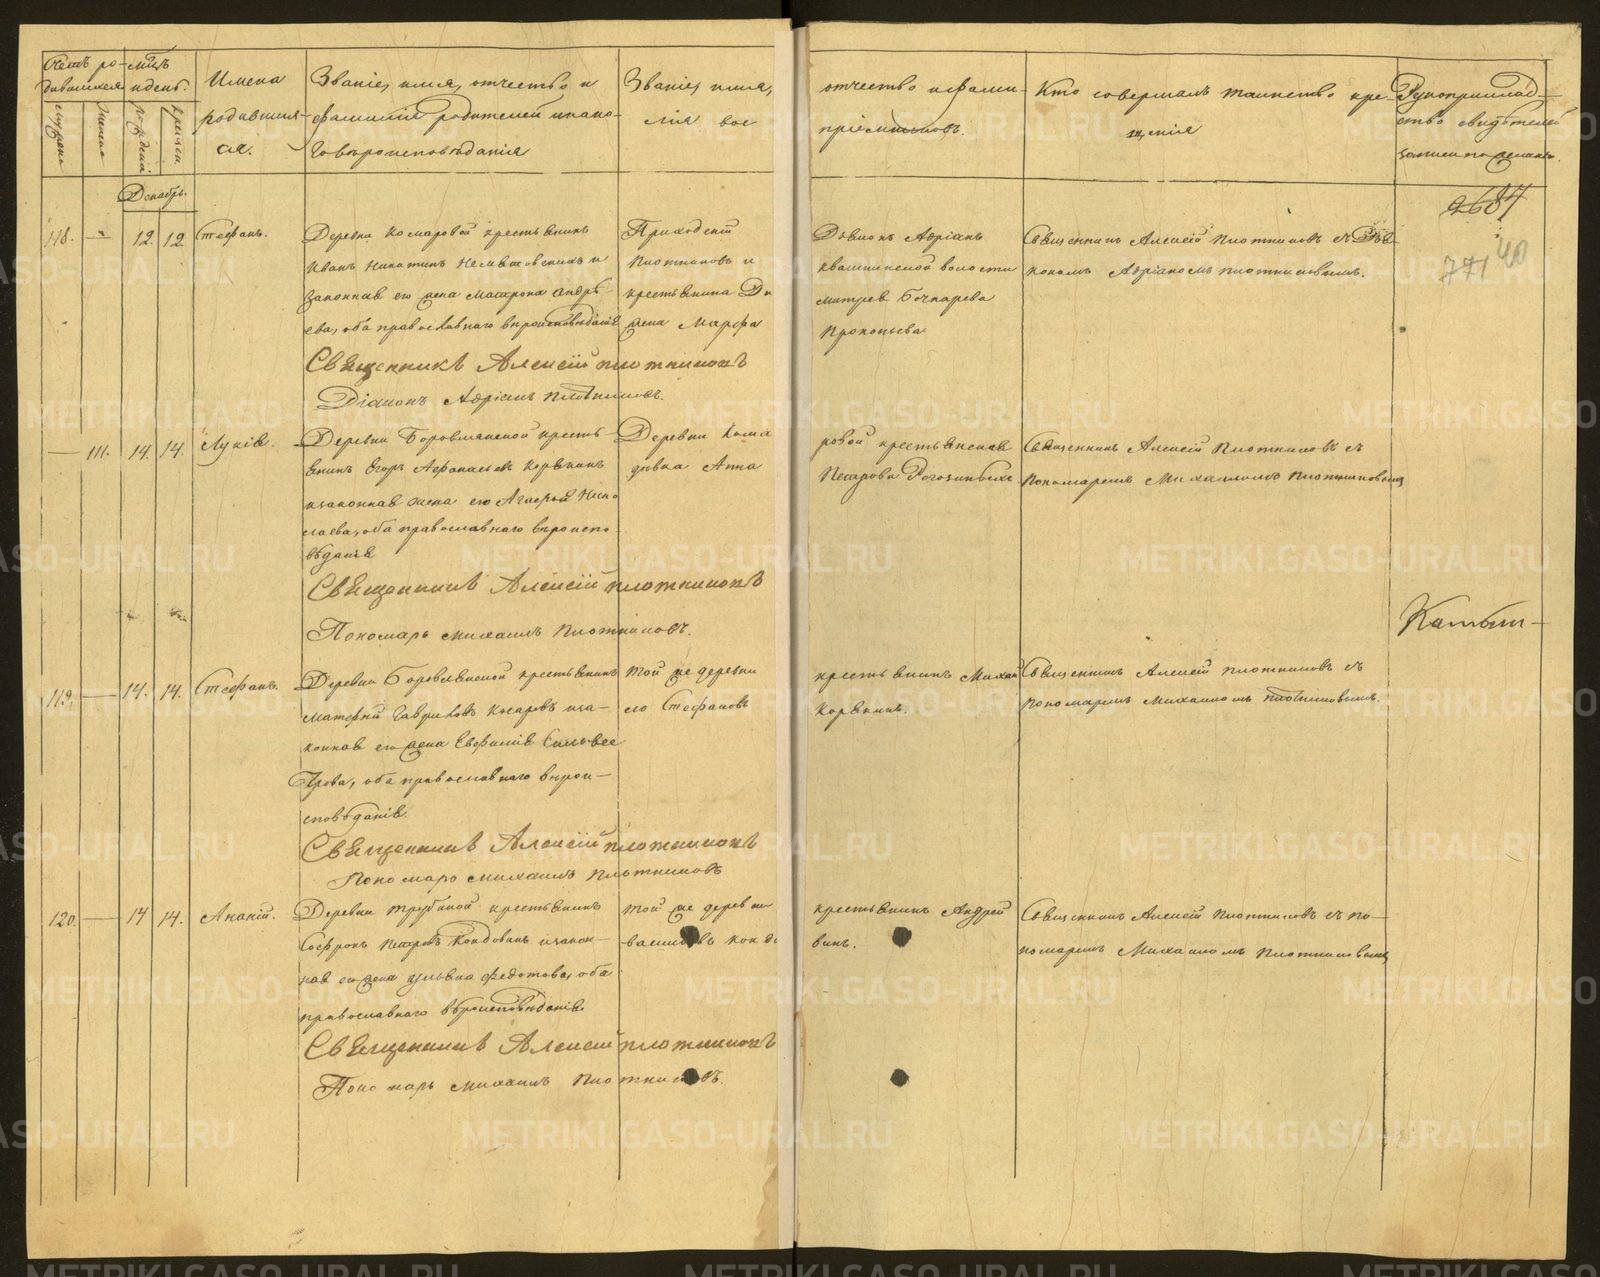 Счетъ ро-
дившихся
мужеска
женска
М-цъ
и день.
рожденія
крещенія
Имена
родивших-
ся.
Званіе, имя, отчество и
фамилія родителей и како-
го вѣроисповѣданія
Званіе, имя,
лія вос
отчество и фами-
пріемниковъ.
Кто совершалъ таинство кре-
щенія
Рукоприклад-
ство свидѣтелей
записи по желанію.
Декабрь.
118. — 12. 12. Стефанъ.
Деревни Комаровой крестьянинъ
Иванъ Никитинъ и
законная его жена Матрона Андрѣ-
ева, оба православнаго вѣроисповѣданія
Священникъ Алексій Плотниковъ
Діаконъ Адріанъ Плотниковъ.
Приходскій
Плотниковъ и
крестьянина Ди
жена Марфа
Діаконъ Адріанъ
волости
митрея Бочкарева
Прокопьева
Священникъ Алексѣй Плотниковъ съ Діа-
кономъ Адріаномъ Плотниковымъ.
771 40
— 111. 14. 14. Лукія.
Деревни Боровлянской кресть-
янинъ Егоръ Афанасьевъ Корякинъ
и законная жена его Агафья Нико
лаева, оба православнаго вѣроиспо
вѣданія
Священникъ Алексій Плотниковъ
Пономарь Михаилъ Плотниковъ.
Деревни Кома
дѣвка Анна
ровой крестьянская
Петрова
Священникъ Алексѣй Плотниковъ съ
Пономаремъ Михаиломъ Плотниковымъ
119. — 14. 14. Стефанъ.
Деревни Боровлянской крестьянинъ
Матфей Гавриловъ Косаревъ и за-
конная его жена Евфимія Сильве
строва, оба православнаго вѣрои-
сповѣданія.
Священникъ Алексій Плотниковъ
Пономарь Михаилъ Плотниковъ
той же деревни
ло Стефановъ
крестьянинъ Михаи
Корякинъ.
Священникъ Алексѣй Плотниковъ съ
пономаремъ Михаиломъ Плотниковымъ.
120. — 14 14. Ананій.
Деревни Трубиной крестьянинъ
Софронъ Петровъ Кондовинъ и закон-
ная его жена Ульяна Федотова, оба
православнаго вѣроисповѣданія.
Священникъ Алексій Плотниковъ
Пономарь Михаилъ Плотниковъ.
той же деревни
Васильевъ Кондо
крестьянинъ Андрей
винъ.
Священникъ Алексѣй Плотниковъ съ по-
номаремъ Михаиломъ Плотниковымъ
METRIKI.GASO-URAL.RU